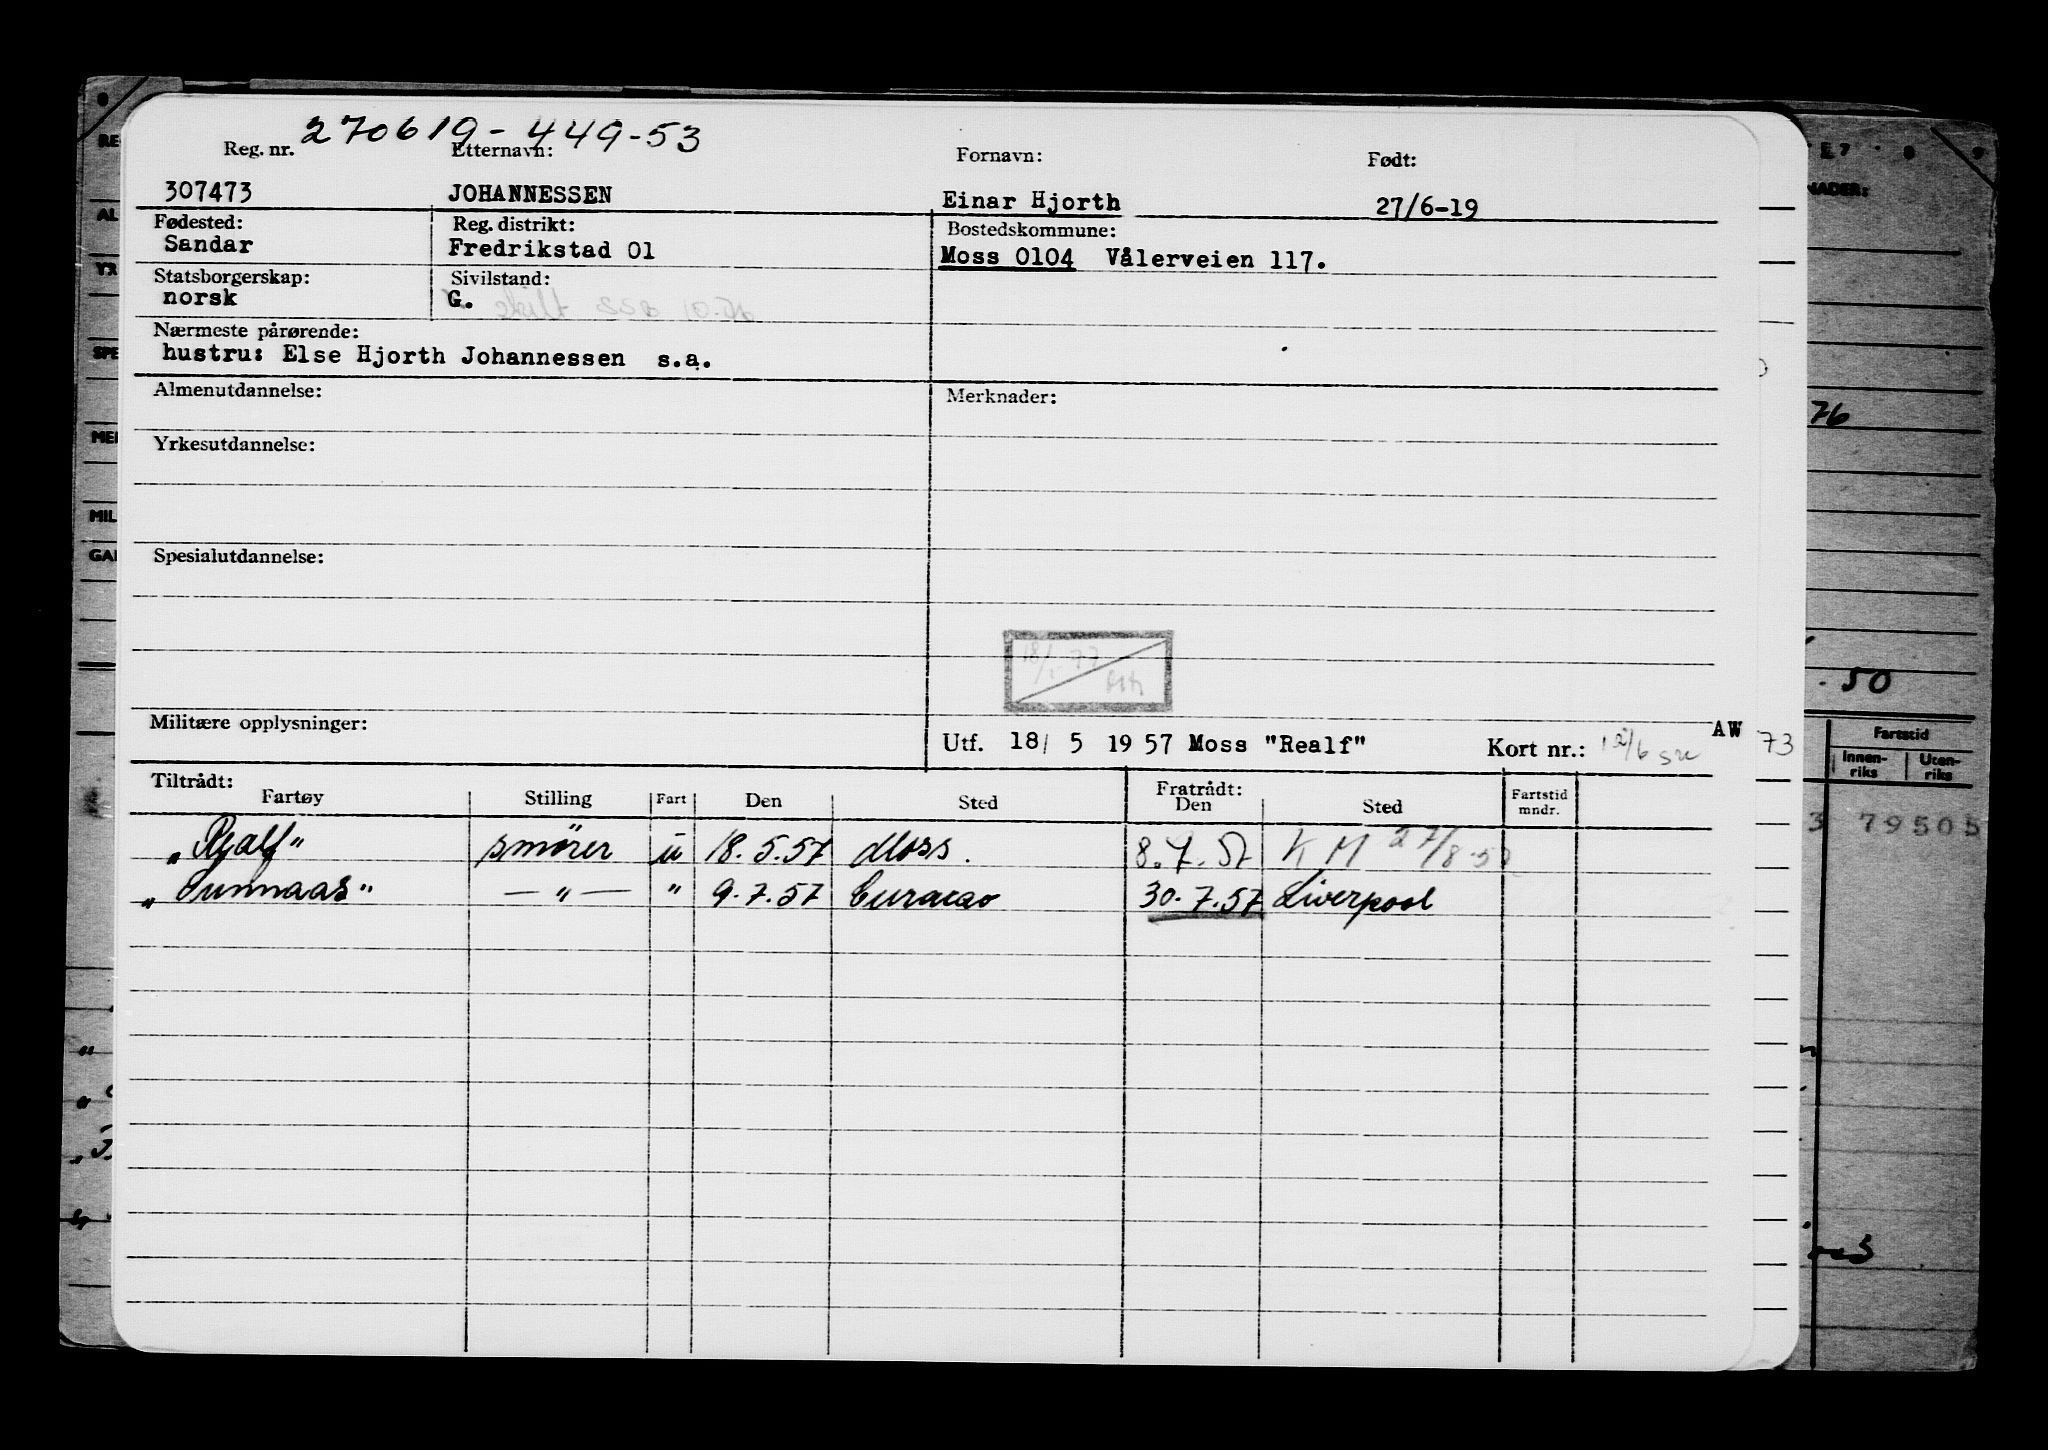 270619-449-53
Reg. nr. Etternavn: Fornavn: Født:
307473 JOHANNESSEN Einar Hjorth 27/6-19
Fødested: Reg. distrikt: Bostedskommune:
Sandar Fredrikstad 01 Moss 0104 Vålerveien 117.
Statsborgerskap: Sivilstand:
norsk G. skilt
Nærmeste pårørende:
hustru: Else Hjorth Johannessen s.a.
Almenutdannelse: Merknader:
Yrkesutdannelse:
Spesialutdannelse:
Militære opplysninger:
Utf. 18/ 5 19 57 Moss "Realf" Kort nr.: AW 73
Tiltrådt: Fratrådt:
Fartøy Stilling Fart Den Sted Den Sted Fartstid mndr.
smører u 18.5.57 Moss. 8.7.57 K M 27/8-57
„Sunnaas" — " — " 9.7.57 Curacao 30.7.57 Liverpool
76
. 50
Fartstid
Innen-riks Uten-riks
3 79505